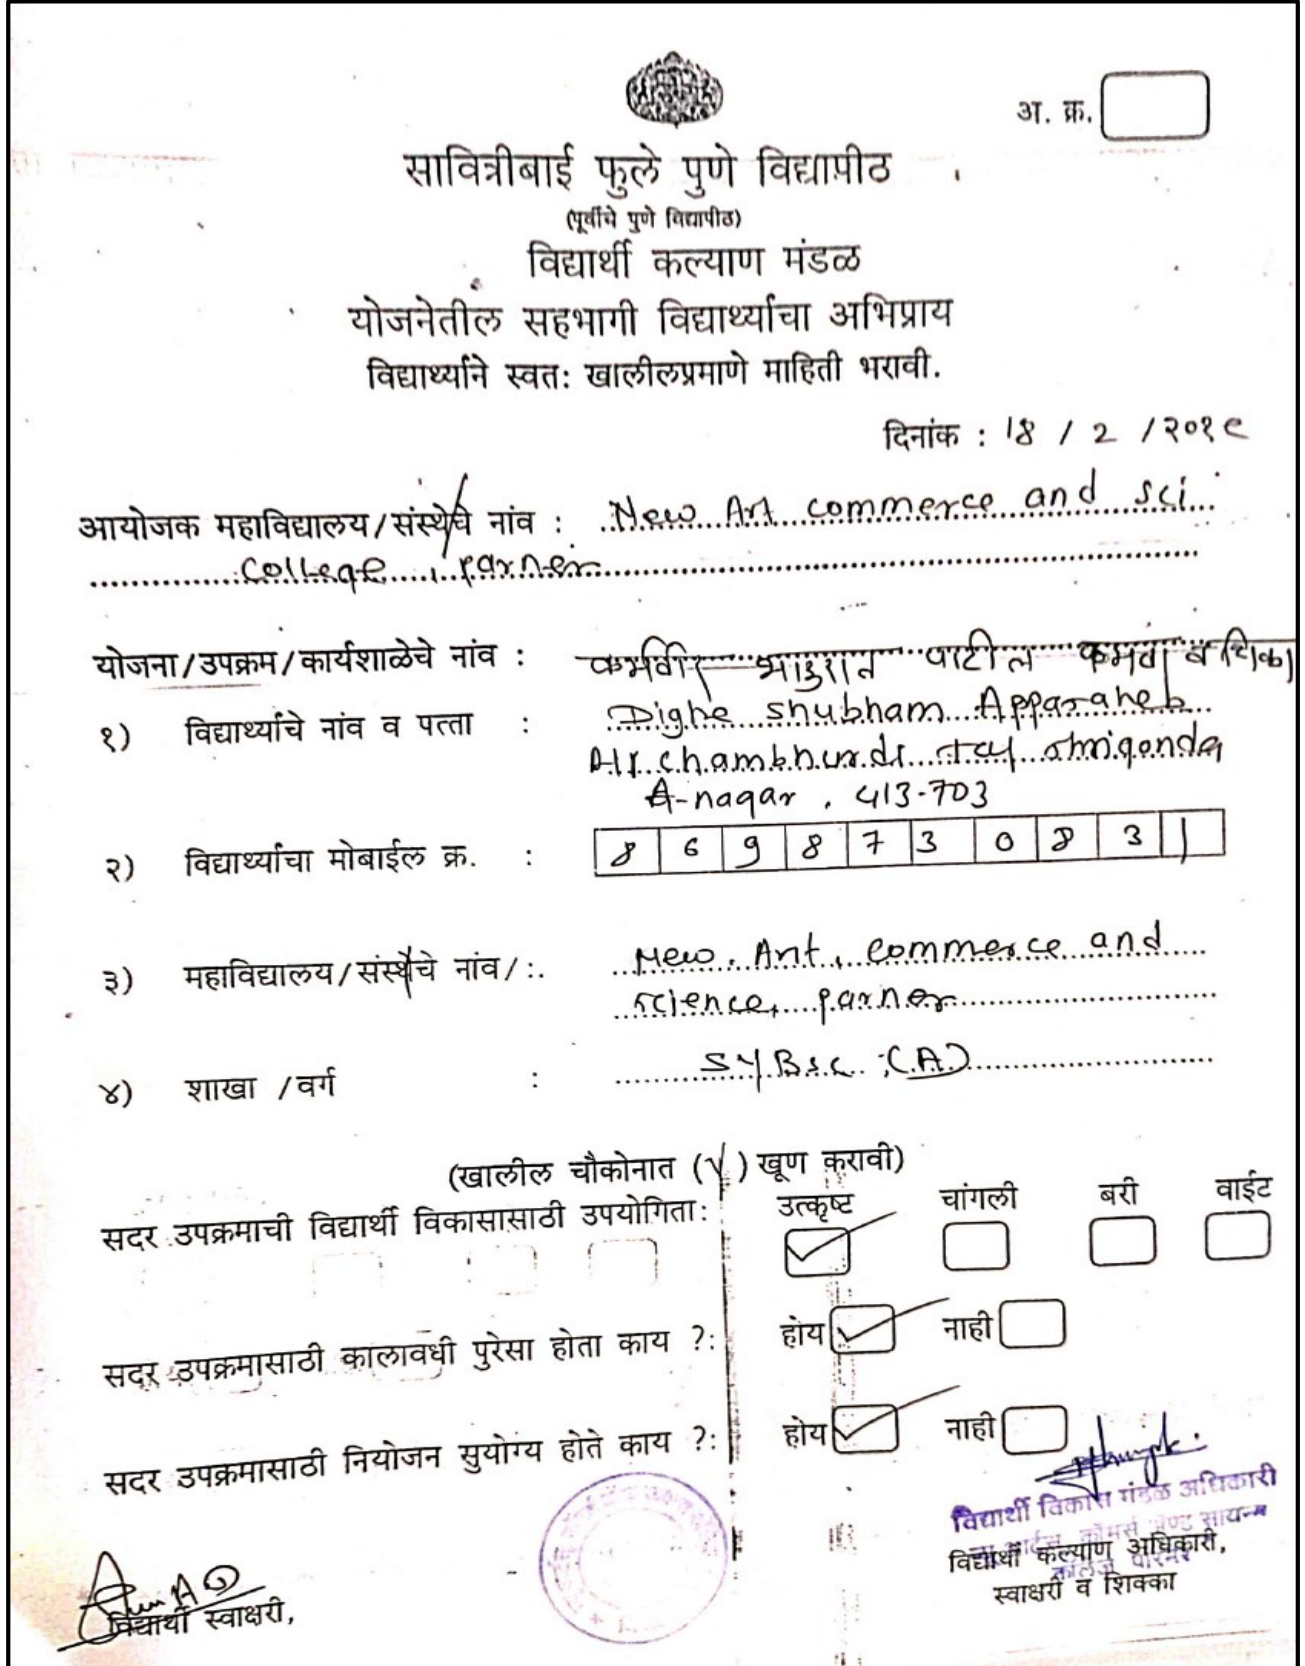 अ. क्र.
सावित्रीबाई फुले पुणे विद्यापीठ
(पूर्वीचे पुणे विद्यापीठ)
विद्यार्थी कल्याण मंडळ
योजनेतील सहभागी विद्यार्थ्याचा अभिप्राय
विद्यार्थ्याने स्वतः खालीलप्रमाणे माहिती भरावी.
दिनांक : 18 / 2 / २०१९
आयोजक महाविद्यालय/संस्थेचे नांव : New Art commerce and sci
college, parner
योजना/उपक्रम/कार्यशाळेचे नांव : कर्मवीर भाऊराव पाटील कमवा व शिका
१) विद्यार्थ्याचे नांव व पत्ता : Dighe shubham Appasaheb
At. chambhurdi tal shrigonda
A-nagar. 413-703
२) विद्यार्थ्याचा मोबाईल क्र. : 8 6 9 8 7 3 0 8 3 1
३) महाविद्यालय/संस्थेचे नांव/:. New. Art, commerce and
science, parner
४) शाखा /वर्ग : SYBsc (A)
(खालील चौकोनात (√) खूण करावी)
सदर उपक्रमाची विद्यार्थी विकासासाठी उपयोगिता: उत्कृष्ट चांगली बरी वाईट
सदर उपक्रमासाठी कालावधी पुरेसा होता काय ?: होय नाही
सदर उपक्रमासाठी नियोजन सुयोग्य होते काय ?: होय नाही
विद्यार्थी विकास मंडळ अधिकारी
आर्टस्, कॉमर्स अॅण्ड सायन्स
कॉलेज पारनेर
विद्यार्थी कल्याण अधिकारी,
स्वाक्षरी व शिक्का
विद्यार्थी स्वाक्षरी,